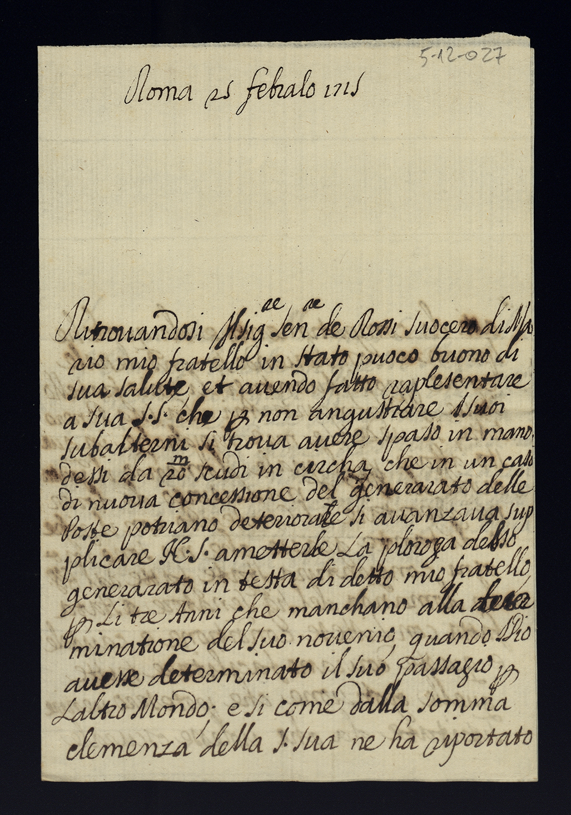 5-12-027
Roma 25 febraĺo 1715
Ritrovandosi Il Sig.re Gen.re de Rossi suocero di Ma
rio mio fratello in stato puoco buono di
sua salute et avendo fatto rapresentare
a sua S.S. che p non angustiare i suoi
subalterni si trova avere spaso in mano
dessi da 20m scudi in circha, che in un caso
di nuova concessione del generarato delle
Poste potriano deteriorare si avanzava sup
plicare N.S. ametterle La proroga desso
generarato in testa di detto mio fratello
p Li tre Anni che manchano alla deter
minatione del suo novenio, quando Dio
avesse determinato il suo passagio p
Laltro Mondo; e si come dalla somma
clemenza della S. Sua ne ha riportato